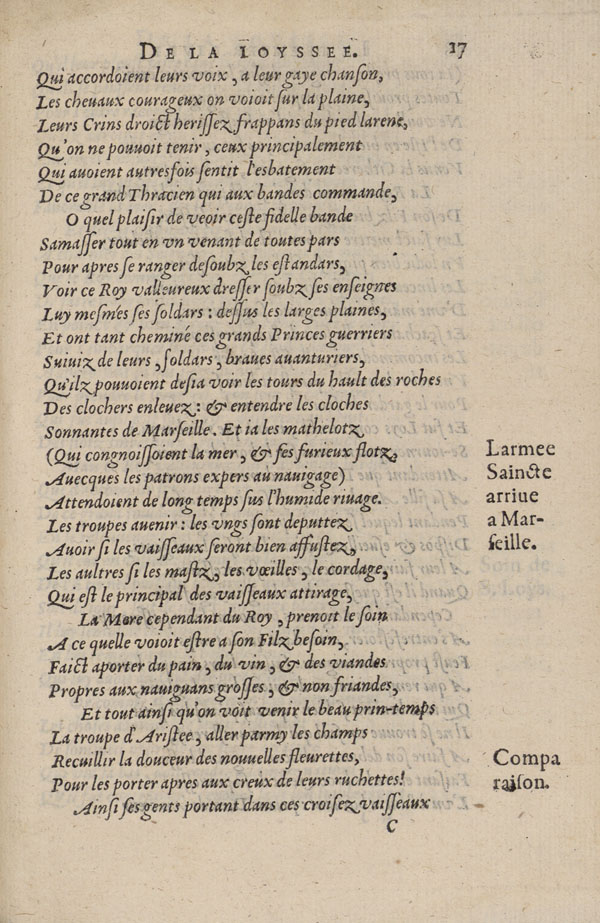 DE LA IOYSSEE. 17
Qui accordoient leurs voix, a leur gaye chanſon,
Les cheuaux courageux on voioit ſur la plaine,
Leurs Crins droict heriſſez frappans du pied larene,
Qu'on ne pouuoit tenir, ceux principalement
Qui auoient autresfois ſentit l'esbatement
De ce grand Thracien qui aux bandes commande,
O quel plaiſir de veoir ceſte fidelle bande
Samaſſer tout en vn venant de toutes pars
Pour apres ſe ranger deſoubz les eſtandars,
Voir ce Roy valleureux dreſſer ſoubz ſes enſeignes
Luy meſmes ſes ſoldars : deſſus les larges plaines,
Et ont tant cheminé ces grands Princes guerriers
Suiuiz de leurs, ſoldars, braues auanturiers,
Qu'ilz pouuoient deſia voir les tours du hault des roches
Des clochers enleuez : & entendre les cloches
Sonnantes de Marſeille. Et ia les mathelotz
(Qui congnoiſſoient la mer, & ſes furieux flotz,
Auecques les patrons expers au nauigage)
Attendoient de long temps ſus l'humide riuage.
Les troupes auenir : les vngs ſont deputtez
Auoir ſi les vaiſſeaux ſeront bien affuſtez,
Les aultres ſi les maſtz, les vœilles, le cordage,
Qui eſt le principal des vaiſſeaux attirage,
La Mere cependant du Roy, prenoit le ſoin
A ce quelle voioit eſtre a ſon Filz beſoin,
Faict aporter du pain, du vin, & des viandes
Propres aux nauiguans groſſes, & non friandes,
Et tout ainſi qu'on voit venir le beau prin-temps
La troupe d'Ariſtee, aller parmy les champs
Recuillir la douceur des nouuelles fleurettes,
Pour les porter apres aux creux de leurs ruchettes!
Ainſi ſes gents portant dans ces croiſez vaiſſeaux
C
Larmee
Saincte
arriue
a Mar-
ſeille.
Compa
raiſon.